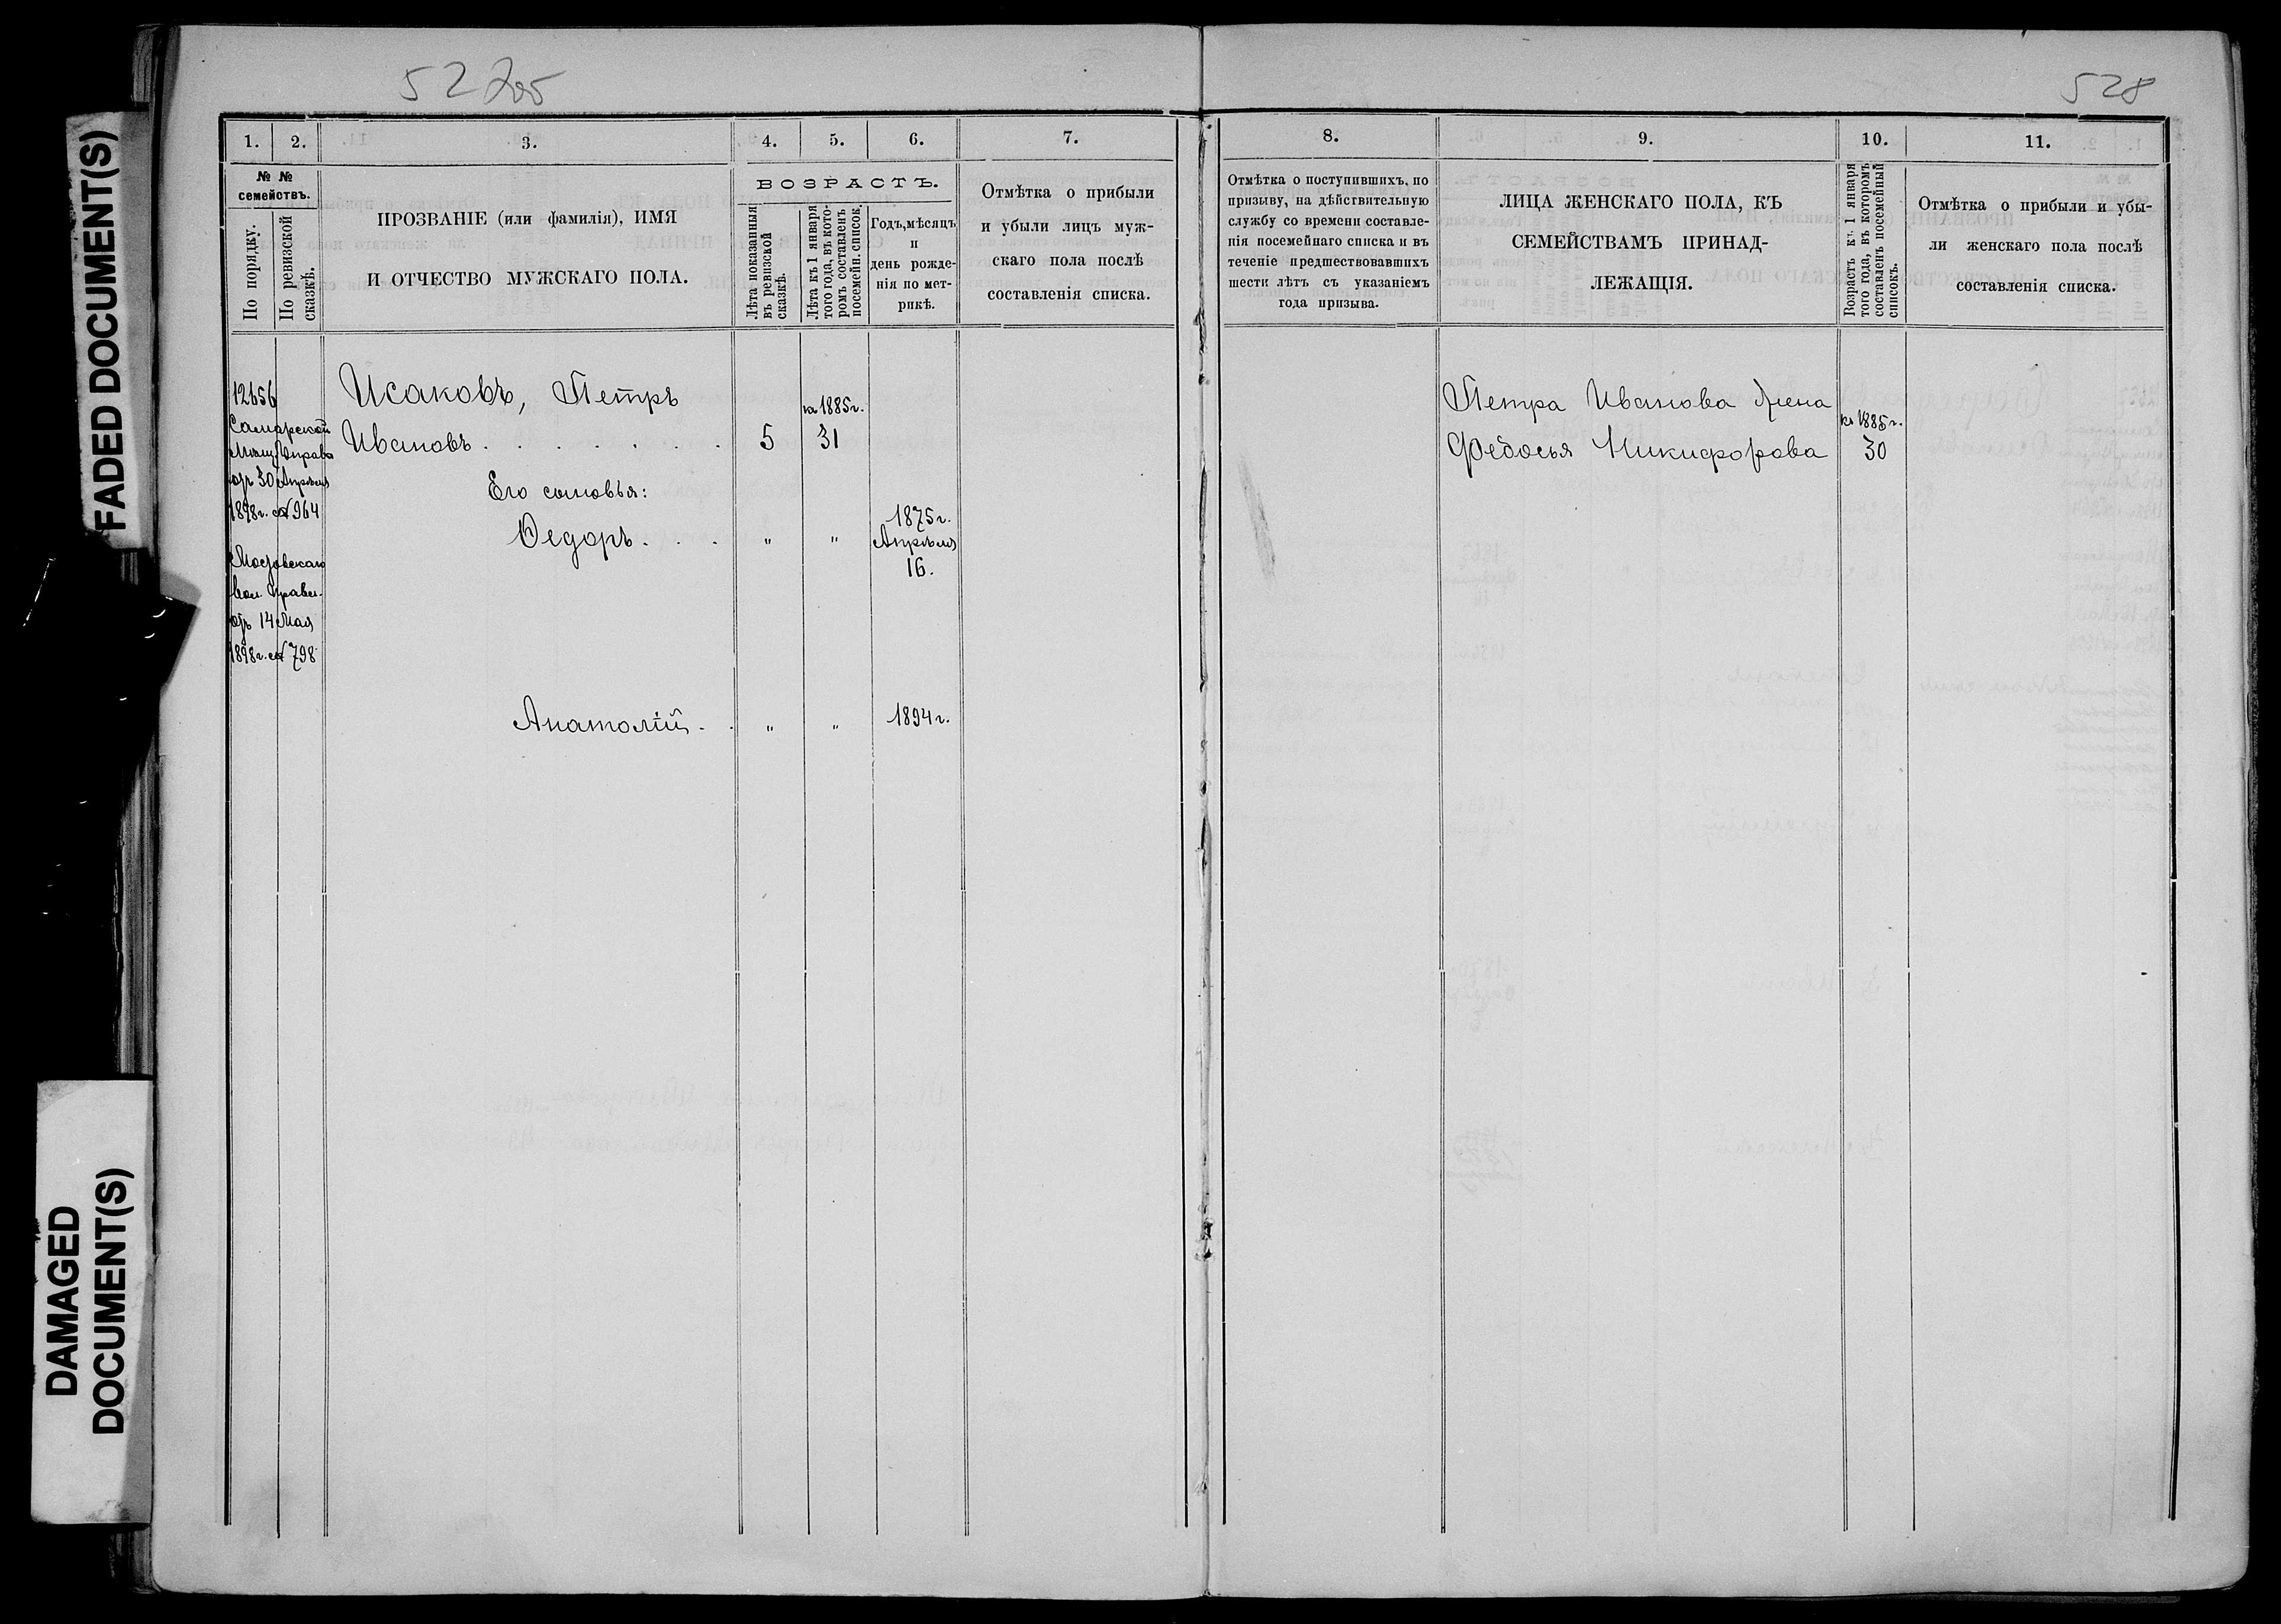 52205
528
FADED DOCUMENT(S)
DAMAGED
DOCUMENT(S)
1.
2.
3.
4.
5.
6.
7.
№ №
семействъ.
По порядку.
По ревизской
сказкѣ.
ПРОЗВАНІЕ (или фамилія), ИМЯ
И ОТЧЕСТВО МУЖСКАГО ПОЛА.
ВОЗРАСТЪ.
Лѣта показанныя
въ ревизской
сказкѣ.
Лѣта къ 1 января
того года, въ кото-
ромъ составленъ
посемейн. список.
Годъ, мѣсяцъ
и
день рожде-
нія по мет-
рикѣ.
Отмѣтка о прибыли
и убыли лицъ муж-
скаго пола послѣ
составленія списка.
12656
Самарской
Мѣщ. Управы
отъ 30 Апрѣля
1898 г. № 964
Московскаго
вол. правл.
отъ 14 Мая
1898 г. № 798
Исаковъ, Петръ
Ивановъ . . . . . . .
5
на 1885 г.
31
Его сыновья:
Ѳедоръ . . .
"
"
1875 г.
Апрѣля
16.
Анатолій . .
"
"
1894 г.
8.
9.
10.
11.
Отмѣтка о поступившихъ, по
призыву, на дѣйствительную
службу со времени составле-
нія посемейнаго списка и въ
теченіе предшествовавшихъ
шести лѣтъ съ указаніемъ
года призыва.
ЛИЦА ЖЕНСКАГО ПОЛА, КЪ
СЕМЕЙСТВАМЪ ПРИНАД-
ЛЕЖАЩІЯ.
Возрастъ къ 1 января
того года, въ которомъ
составленъ посемейный
списокъ.
Отмѣтка о прибыли и убы-
ли женскаго пола послѣ
составленія списка.
Петра Иванова жена
Федосья Никифорова
къ 1885 г.
30